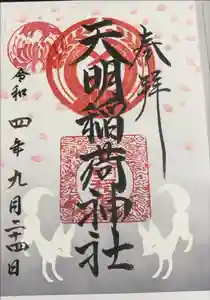 奉拝
天明稲荷神社
令和四年九月二十四日